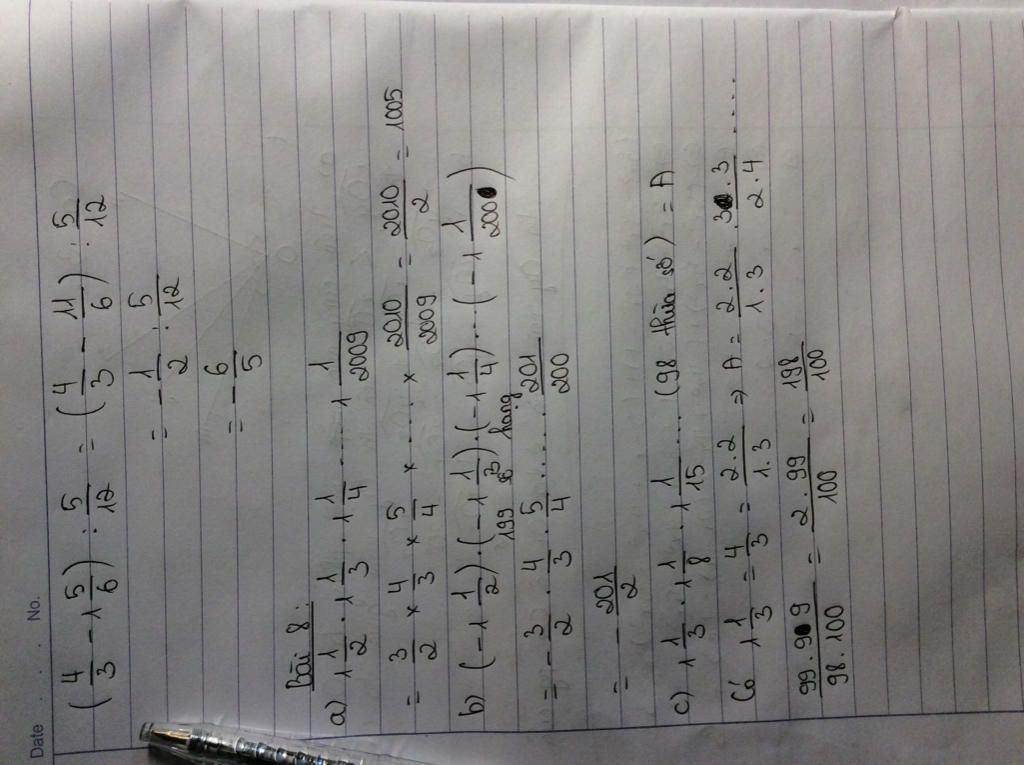 Date . . . . No.
(4/3 - 1 5/6) : 5/12 = (4/3 - 11/6) : 5/12
= -1/2 : 5/12
= -6/5
Bài 8:
a) 1 1/2 . 1 1/3 . 1 1/4 .... 1 1/2009
= 3/2 × 4/3 × 5/4 × .... × 2010/2009 = 2010/2 = 1005
b) (-1 1/2) . (-1 1/3) . (-1 1/4) .... (-1 1/200)
199 số hạng
= - 3/2 . 4/3 . 5/4 ....... 201/200
= - 201/2
c) 1 1/3 . 1 1/8 . 1 1/15 .... (98 thừa số) = A
Có 1 1/3 = 4/3 = 2.2/1.3 => A = 2.2/1.3 . 3.3/2.4 ....
99.99/98.100 = 2.99/100 = 198/100